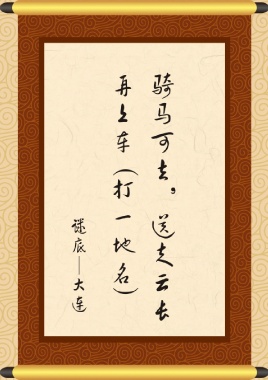 骑马可去，送走云长
再上车（打一地名）
谜底——大连